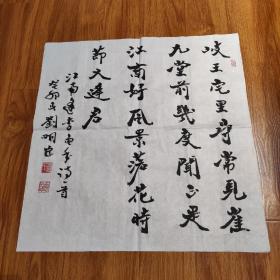 岐王宅里寻常见崔
九堂前几度闻正是
江南好风景落花时
节又逢君
江南逢李龟年诗一首
癸卯年刘明